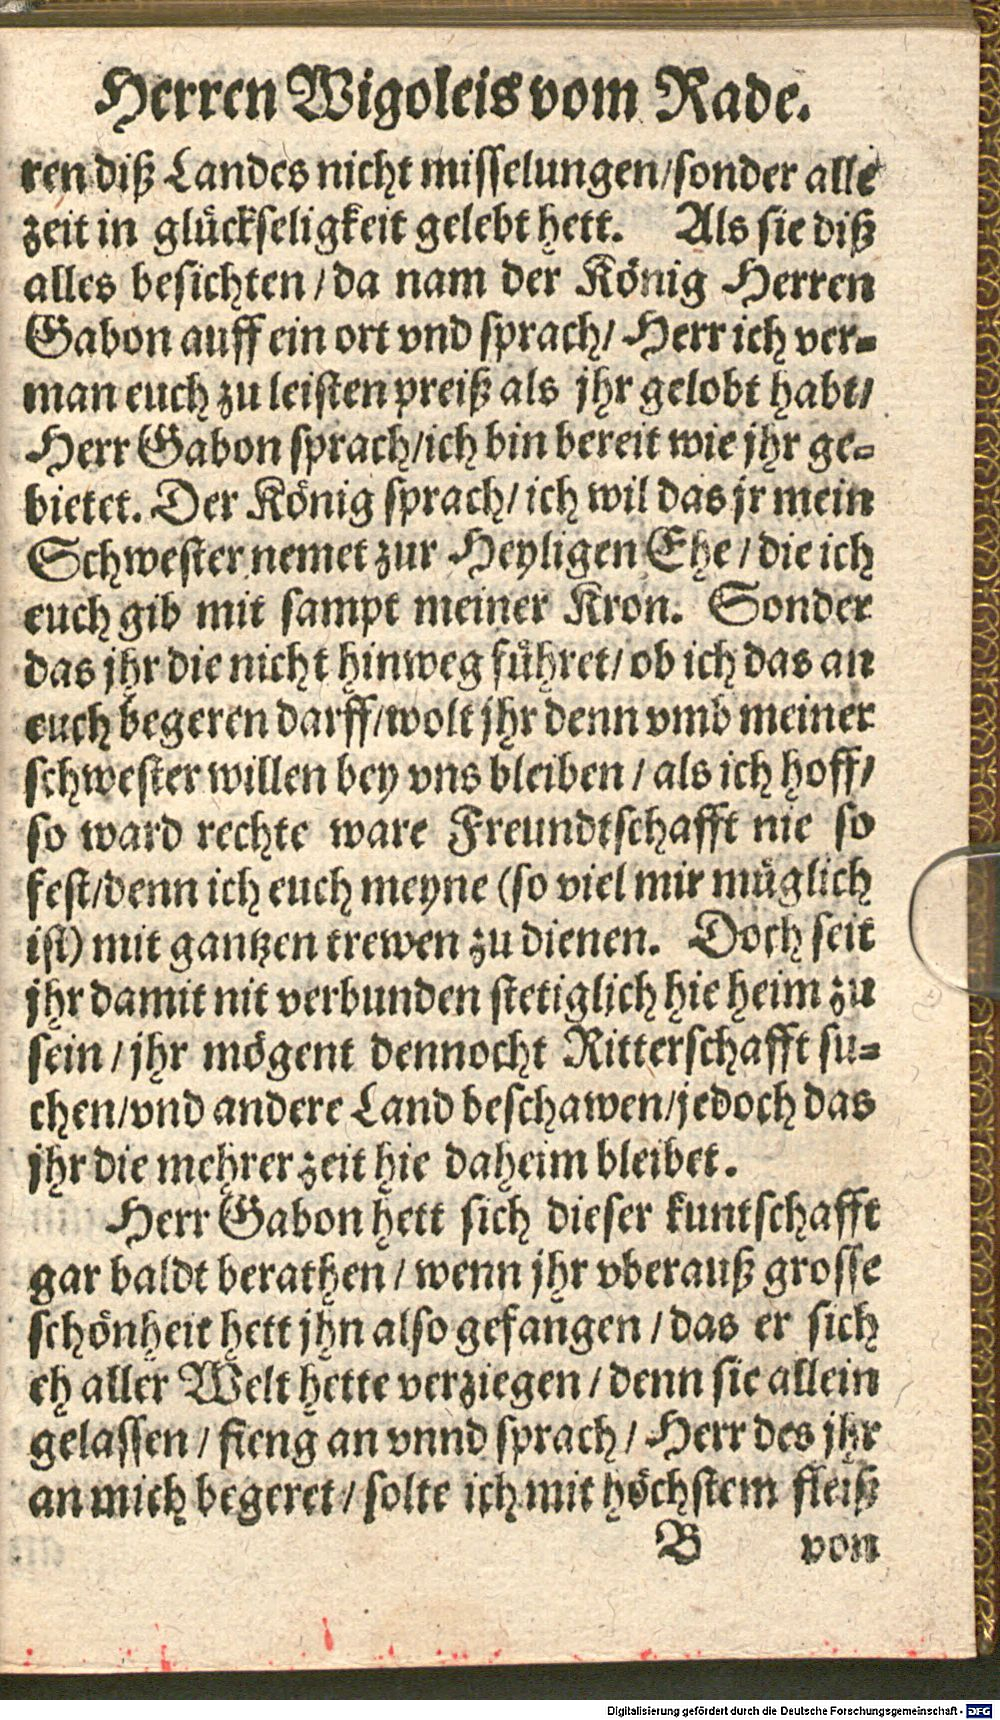 Herren Wigoleis vom Rade.
ren diß Landes nicht misselungen/sonder alle
zeit in glückseligkeit gelebt hett. Als sie diß
alles besichten/da nam der König Herren
Gabon auff ein ort vnd sprach/ Herr ich ver-
man euch zu leisten preiß als jhr gelobt habt/
Herr Gabon sprach/ich bin bereit wie jhr ge-
bietet. Der König sprach/ ich wil das jr mein
Schwester nemet zur Heyligen Ehe/ die ich
euch gib mit sampt meiner Kron. Sonder
das jhr die nicht hinweg führet/ ob ich das an
euch begeren darff/wolt jhr denn vmb meiner
schwester willen bey vns bleiben/ als ich hoff/
so ward rechte ware Freundtschafft nie so
fest/denn ich euch meyne (so viel mir müglich
ist) mit gantzen trewen zu dienen. Doch seit
jhr damit nit verbunden stetiglich hie heim zu
sein/ jhr mögent dennocht Ritterschafft su-
chen/vnd andere Land beschawen/jedoch das
jhr die mehrer zeit hie daheim bleibet.
Herr Gabon hett sich dieser kuntschafft
gar baldt berathen/ wenn jhr vberauß grosse
schönheit hett jhn also gefangen/ das er sich
eh aller Welt hette verziegen/ denn sie allein
gelassen/ fieng an vnnd sprach/ Herr des jhr
an mich begeret/ solte ich mit höchstem fleiß
B von
Digitalisierung gefördert durch die Deutsche Forschungsgemeinschaft - DFG